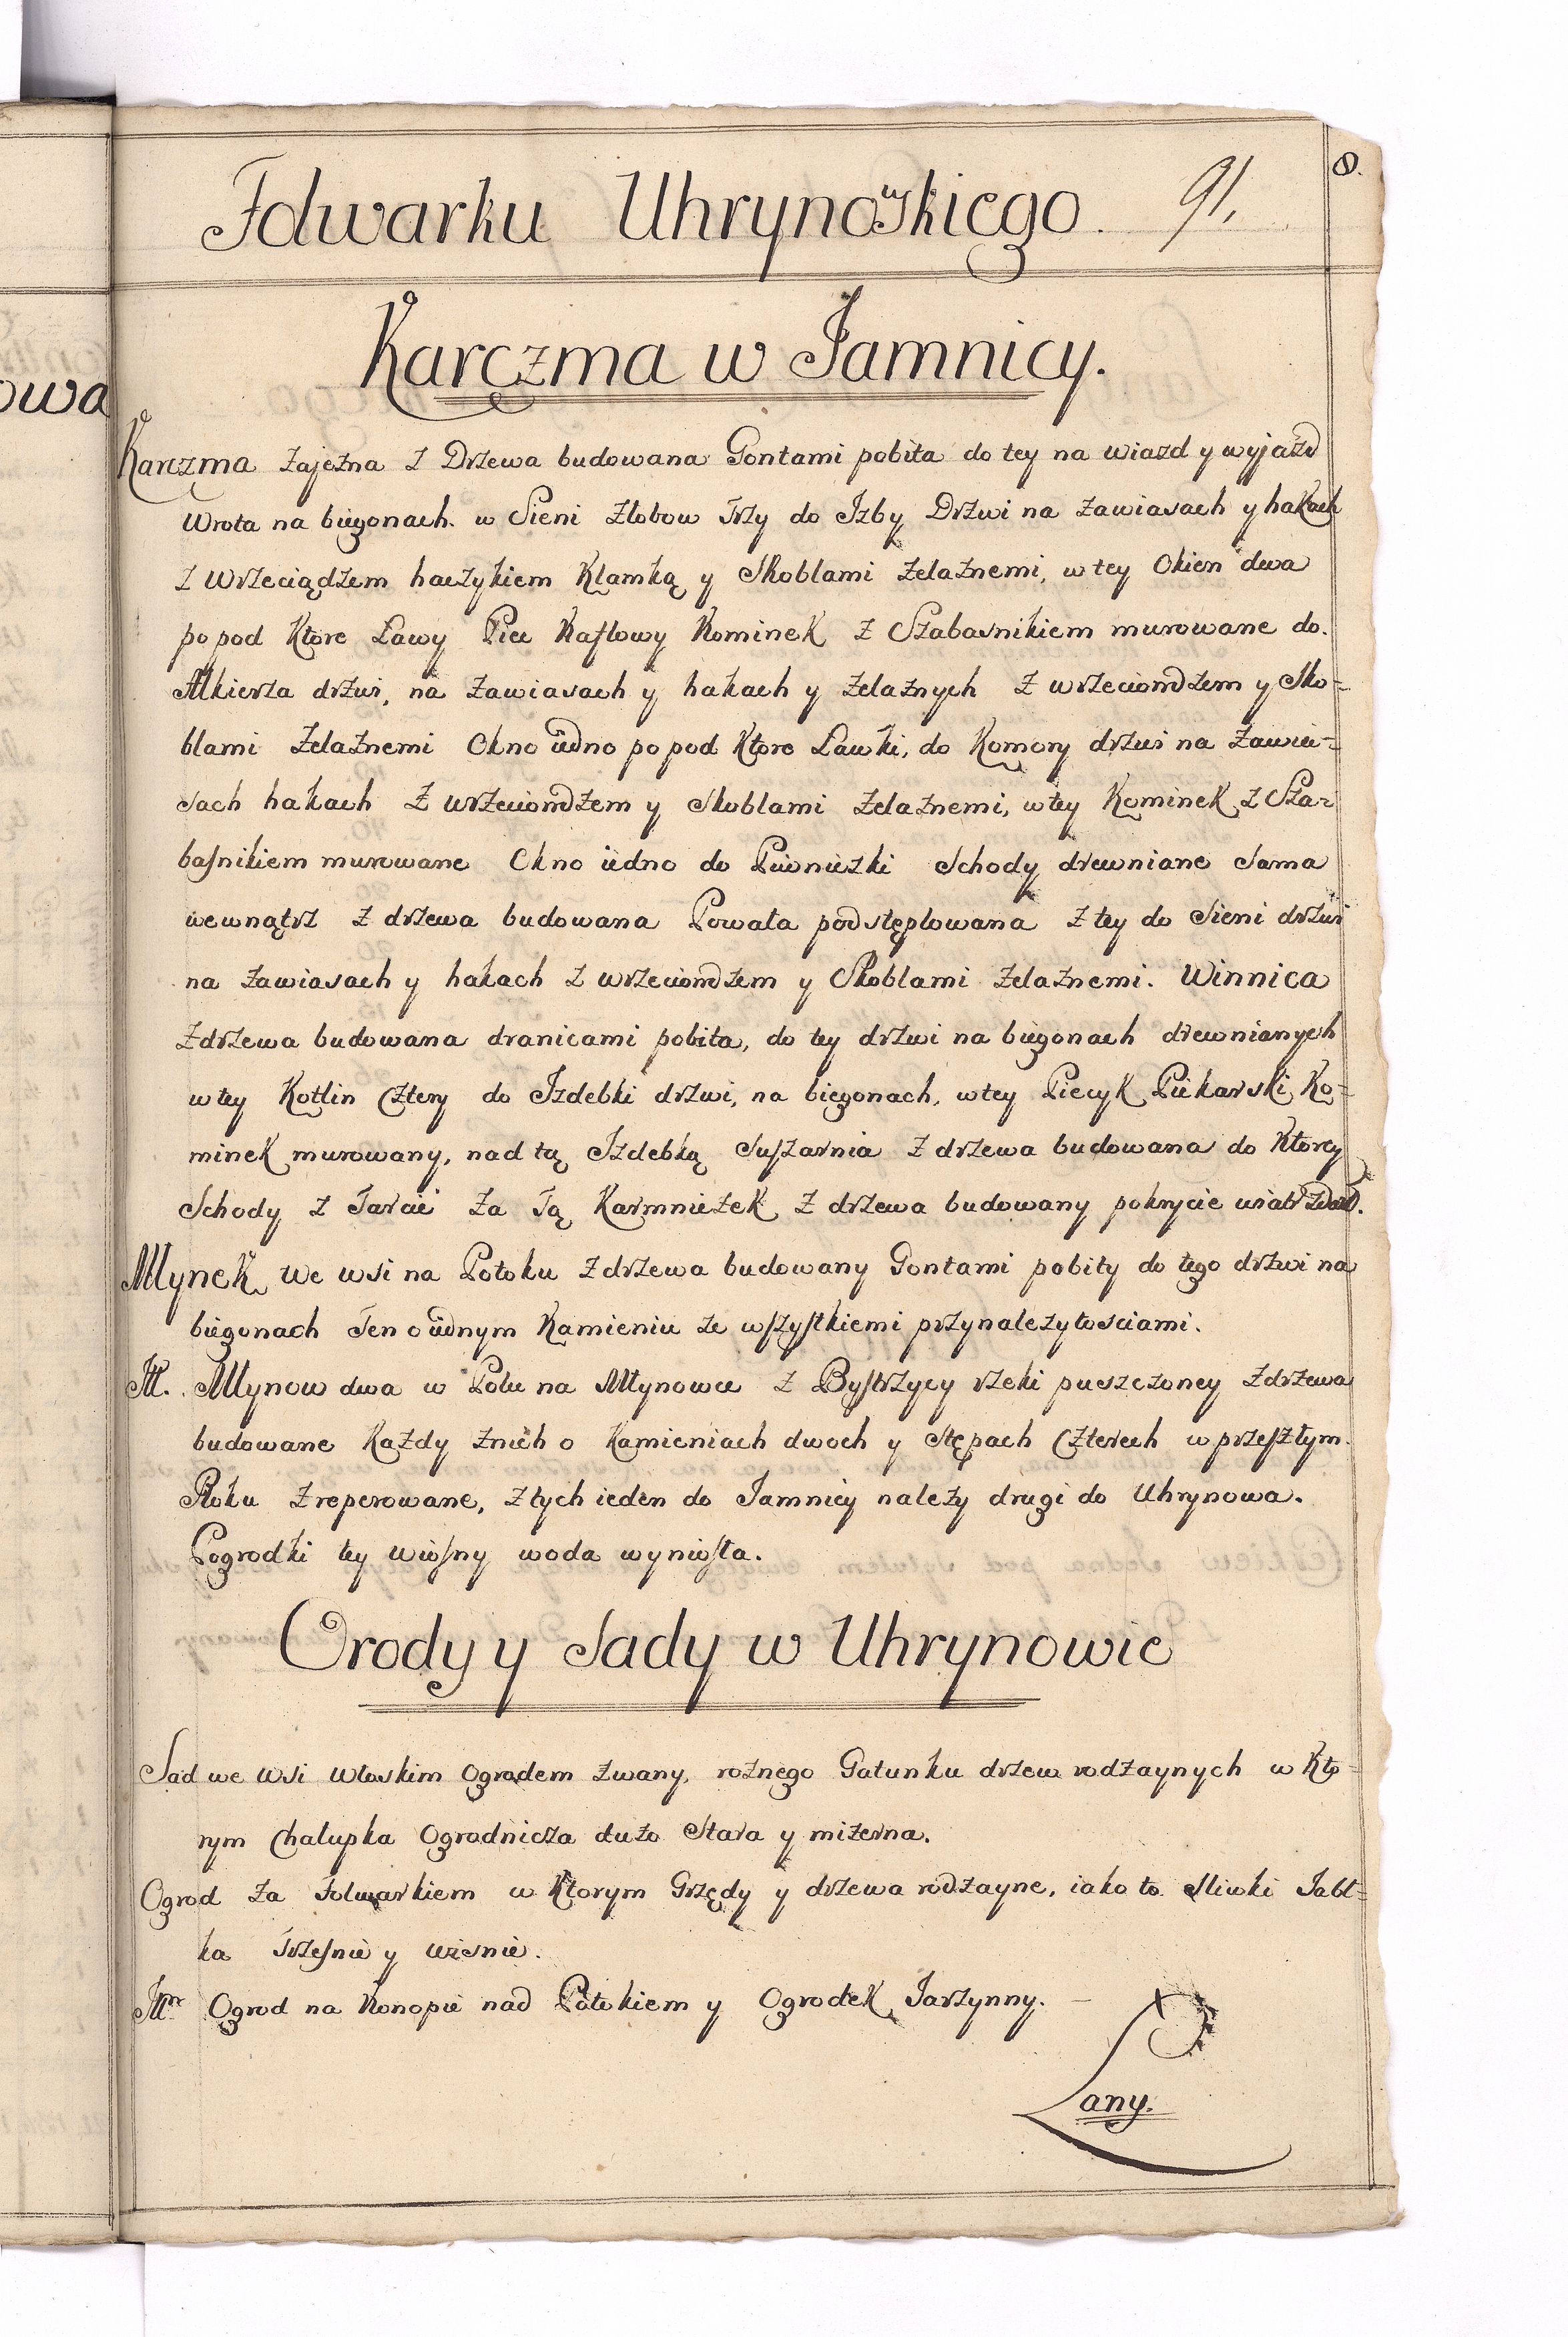 8.
Folwarku Uhrynowskiego. 91.
Karczma w Jamnicy.
owa
Karczma zajezna z Drzewa budowana Gontami pobita do tey na wiazd y wyjazd
Wrota na biegonach. w Sieni Złobow Trzy do Izby Drzwi na zawiasach y hakach
z Wrzeciądzem haczykiem Klamką y Skoblami zelaznemi, w tey Okien dwa
popod Ktore Ławy Piec Kaflowy Kominek z Szabasnikiem murowane do.
Alkierza drzwi, na zawiasach y hakach y zelaznych z wrzeciondzem y Sko=
blami zelaznemi Okno iedno popod Ktore Ławki, do Komory drzwi na zawia=
sach hakach z wrzeciondzem y Skoblami zelaznemi, w tey Kominek z Sza=
basnikiem murowane Okno iedno do Piwniczki Schody drewniane Sama
wewnątrz z drzewa budowana Powała podstęplowana z tey do Sieni drzwi
na zawiasach y hakach z wrzeciondzem y Skoblami zelaznemi. Winnica
z drzewa budowana dranicami pobita, do tey drzwi na biegonach drewnianych
w tey Kotlin Cztery do Izdebki drzwi, na biegonach, w tey Piecyk Piekarski, Ko=
minek murowany, nad tą Izdebką Suszarnia z drzewa budowana do Ktorey
Schody z Tarcic za Tą Karmniczek z drzewa budowany pokrycie wiatr
Młynek we wsi na Potoku z drzewa budowany Gontami pobity do tego drzwi na
biegonach Ten o iednym Kamieniu ze wszystkiemi przynalezytosciami.
It. Młynow dwa w Polu na Młynowce z Bystrzycy rzeki puszczoney z drzewa
budowane Kazdy z nich o Kamieniach dwoch y Stępach Czterech w przeszłym.
Roku zreperowane, z tych ieden do Jamnicy nalezy drugi do Uhrynowa.
Pogrodki tey wiosny woda wyniosła.
Orody y Sady w Uhrynowie
Sad we wsi włoskim Ogrodem zwany, roznego Gatunku drzew rodzaynych w Kto=
rym Chałupka Ogrodnicza duzo Stara y mizerna.
Ogrod za Folwarkiem w Ktorym Grzędy y drzewa rodzayne, iako to Sliwki Jabł=
ka Trzesnie y wisnie.
Itm Ogrod na Konopie nad Potokiem y Ogrodek Jarzynny. —
Łany.